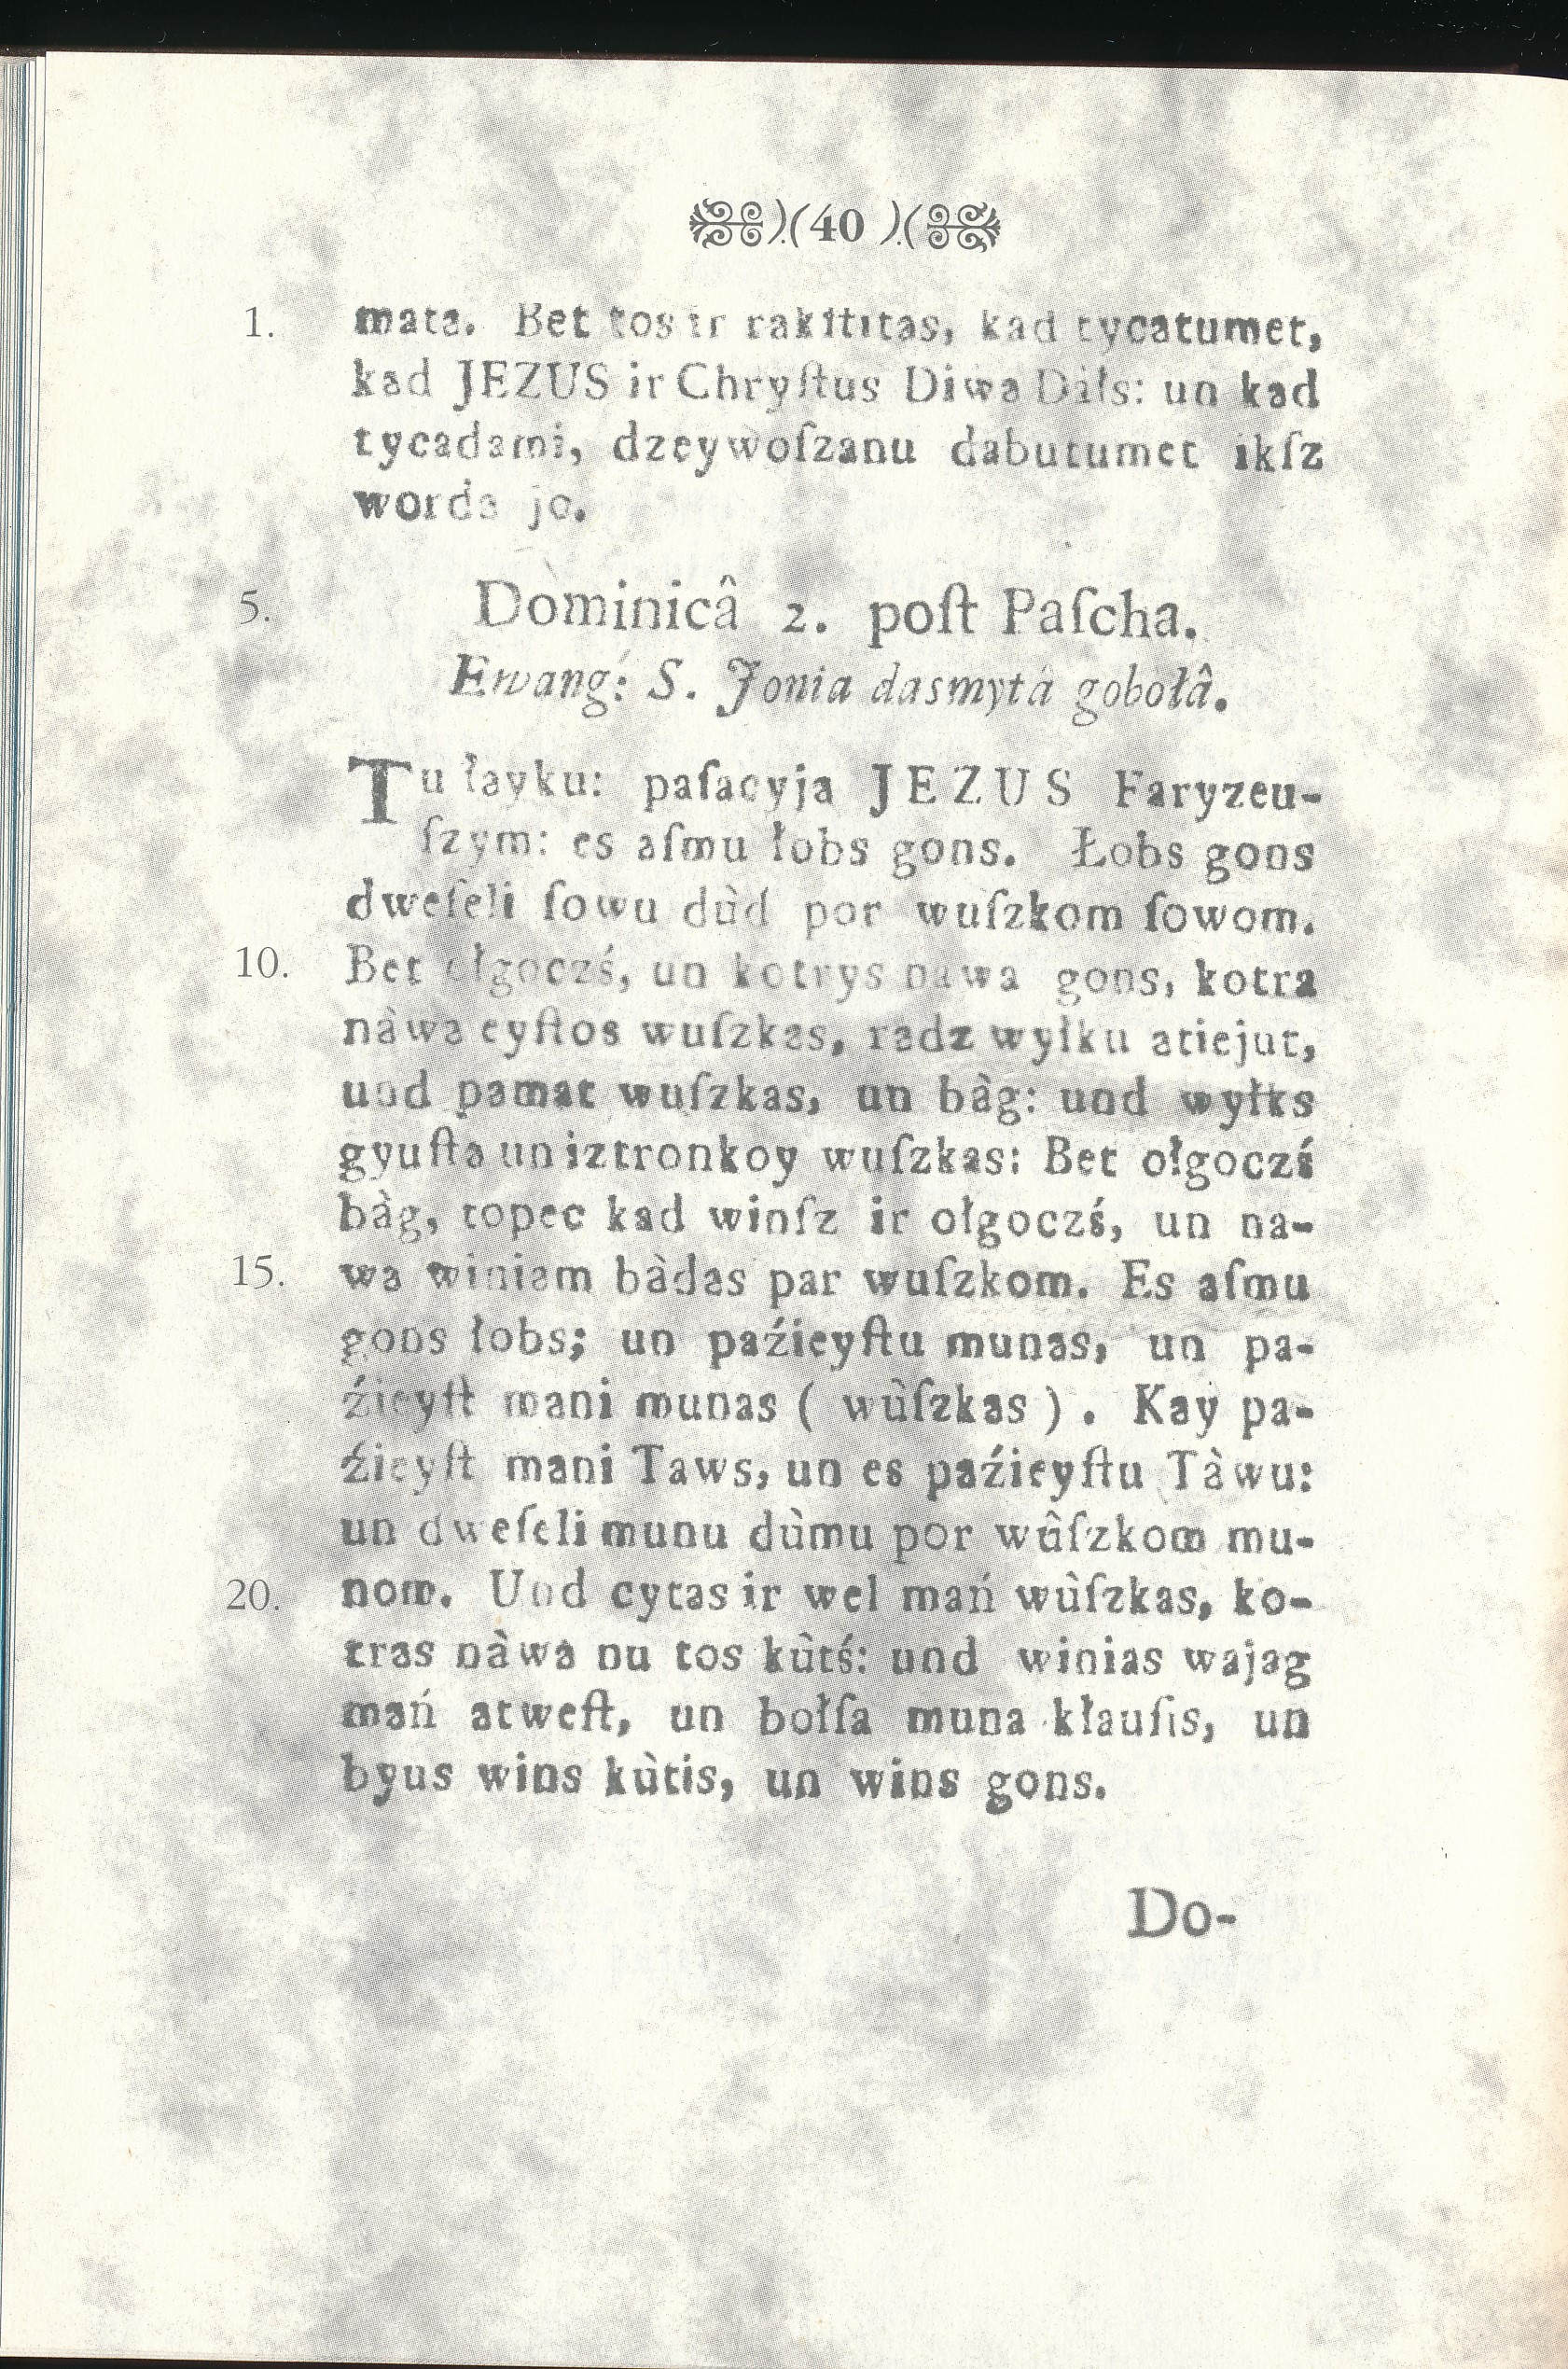 )(40 )(
1. mata. Bet tos ir rakſtitas, kad tycatumet,
kad JEZUS ir Chryſtus Diwa Dàłs: un kad
tycadami, dzeywoſzanu dabutumet ikſz
worda jo.
5. Dominicâ 2. poſt Paſcha.
Ewang: S. Jonia dasmytâ gobołâ.
Tu łayku: paſacyja JEZUS Faryzeu-
ſzym: es aſmu łobs gons. Łobs gons
dweſeli ſowu dùd por wuſzkom ſowom.
10. Bet ołgoczś, un kotrys nawa gons, kotra
nàwa cyſtos wuſzkas, radz wyłku atiejut,
und pamat wuſzkas, un bàg: und wyłks
gyuſta un iztronkoy wuſzkas: Bet ołgoczś
bàg, topec kad winſz ir ołgoczś, un na-
15. wa winiam bàdas par wuſzkom. Es aſmu
gons łobs; un paźieyſtu munas, un pa-
źieyſt mani munas ( wùſzkas ). Kay pa-
źieyſt mani Taws, un es paźieyſtu Tàwu:
un dweſeli munu dùmu por wûſzkom mu-
20. nom. Und cytas ir wel mań wùſzkas, ko-
tras nàwa nu tos kùtś: und winias wajag
mań atweſt, un bołſa muna kłauſis, un
byus wins kùtis, un wins gons.
Do-